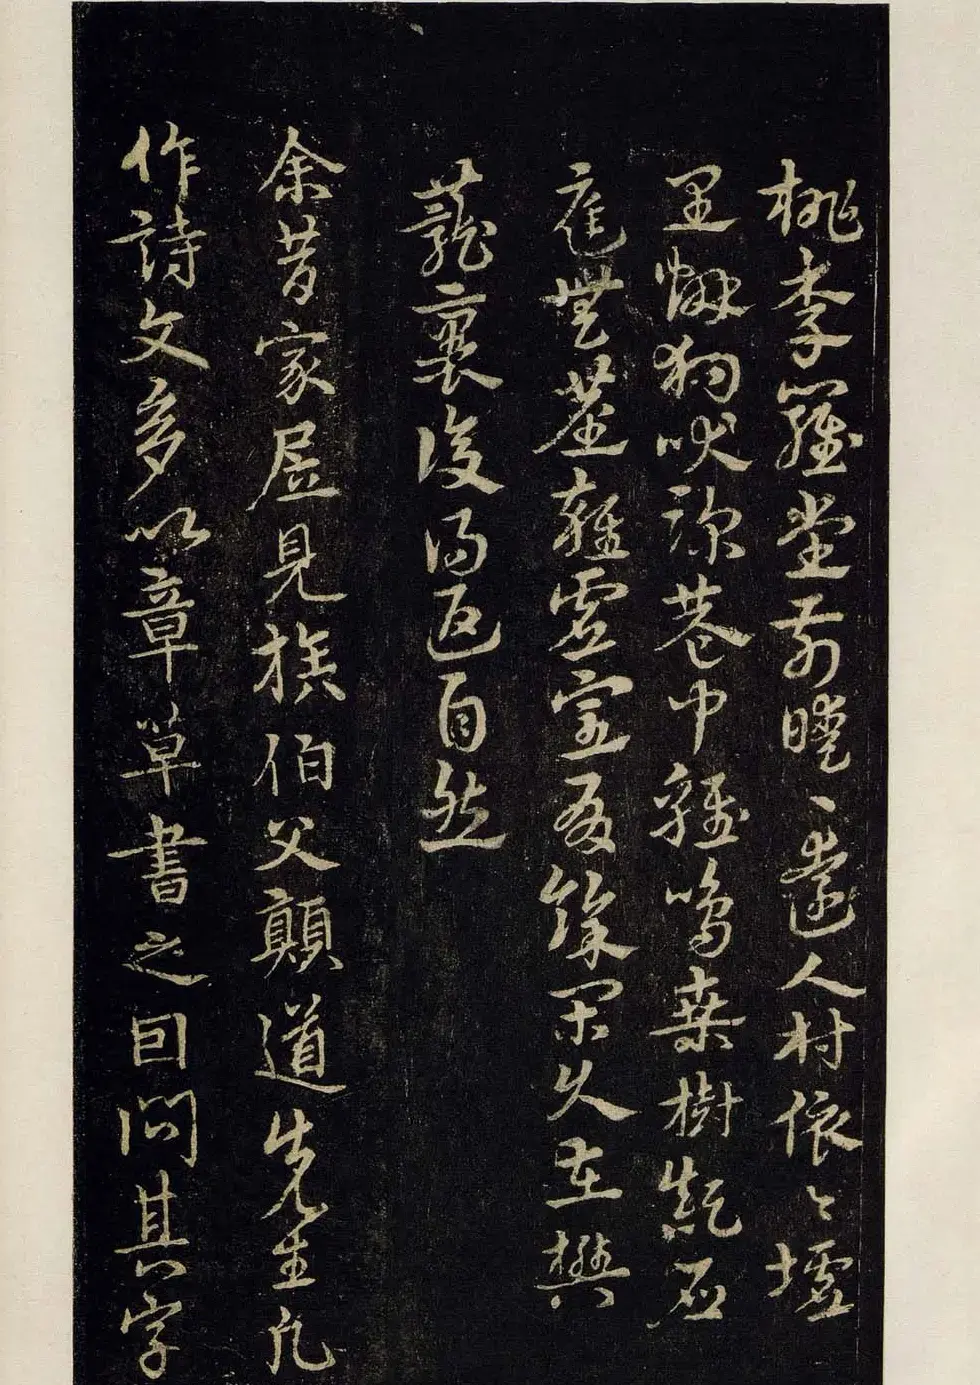 桃李羅堂前曖〻遠人村依〻墟
里煙狗吠深巷中雞鳴桑樹巔戶
庭無塵雜虛室有餘閑久在樊
蘢裏復得返自然
余昔家居見族伯父顛道先生凡
作詩文多以章草書之囙問其字